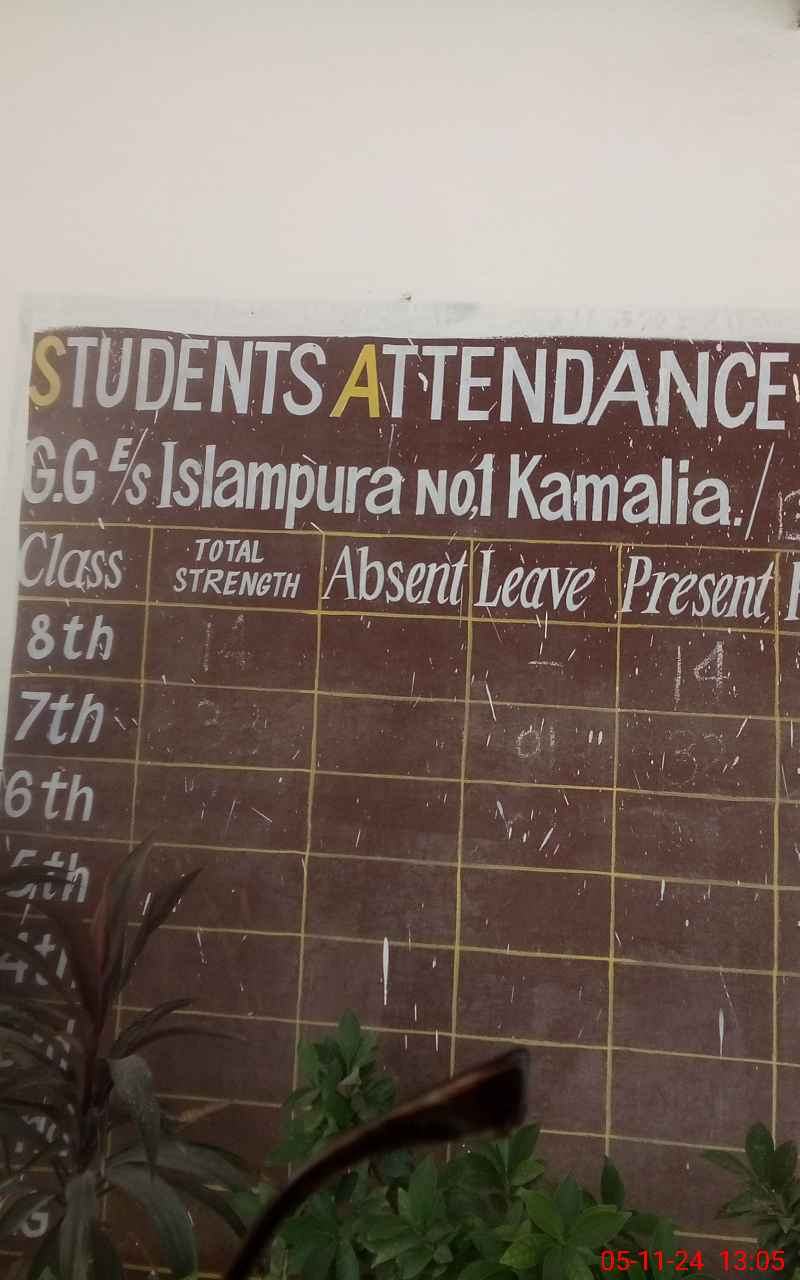 STUDENTS ATTENDANCE
G.G E/S Islampura No,1 Kamalia./
Class TOTAL STRENGTH Absent Leave Present
8th 14 – 14
7th 01 " 32
6th
5th
4th
05-11-24 13:05